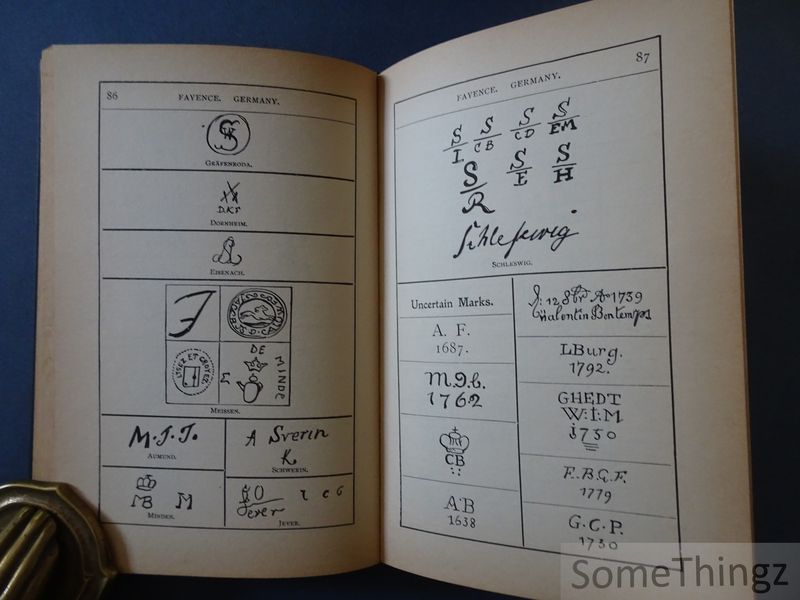 86
FAYENCE. GERMANY.
GRÄFENRODA.
D.K.F
DORNHEIM.
EISENACH.
LISEZ ET CROYEZ
DE
MINDE
MEISSEN.
M.J.J.
AUMUND.
A Sverin
K
SCHWERIN.
MB M
MINDEN.
Jever
JEVER.
87
FAYENCE. GERMANY.
S S S S
I CB CD EM
S S S
R E H
Schleswig
SCHLESWIG.
Uncertain Marks.
A. F.
1687.
1762
CB
A·B
1638
1739
Valentin Bontemps
LBurg.
1792.
GHEDT
W:I:M
1750
F.B.G.F.
1779
G.C.P.
1730
SomeThingz